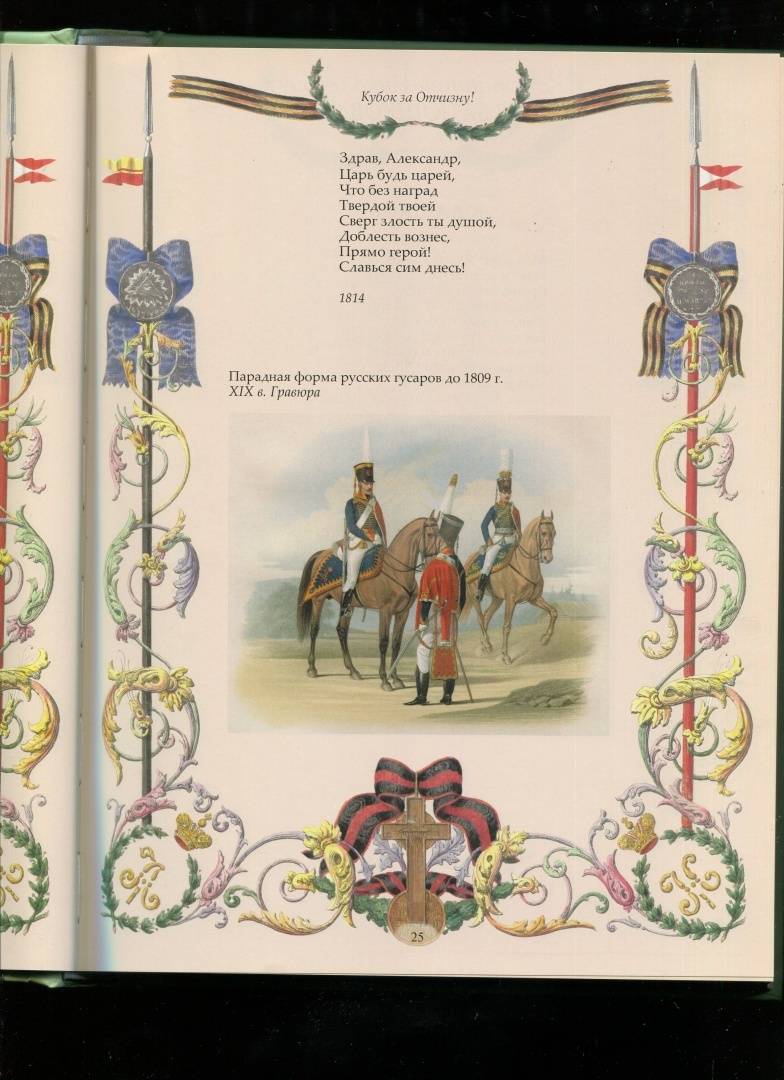 Кубок за Отчизну!
Здрав, Александр,
Царь будь царей,
Что без наград
Твердой твоей
Сверг злость ты душой,
Доблесть вознес,
Прямо герой!
Славься сим днесь!
1814
Парадная форма русских гусаров до 1809 г.
XIX в. Гравюра
25